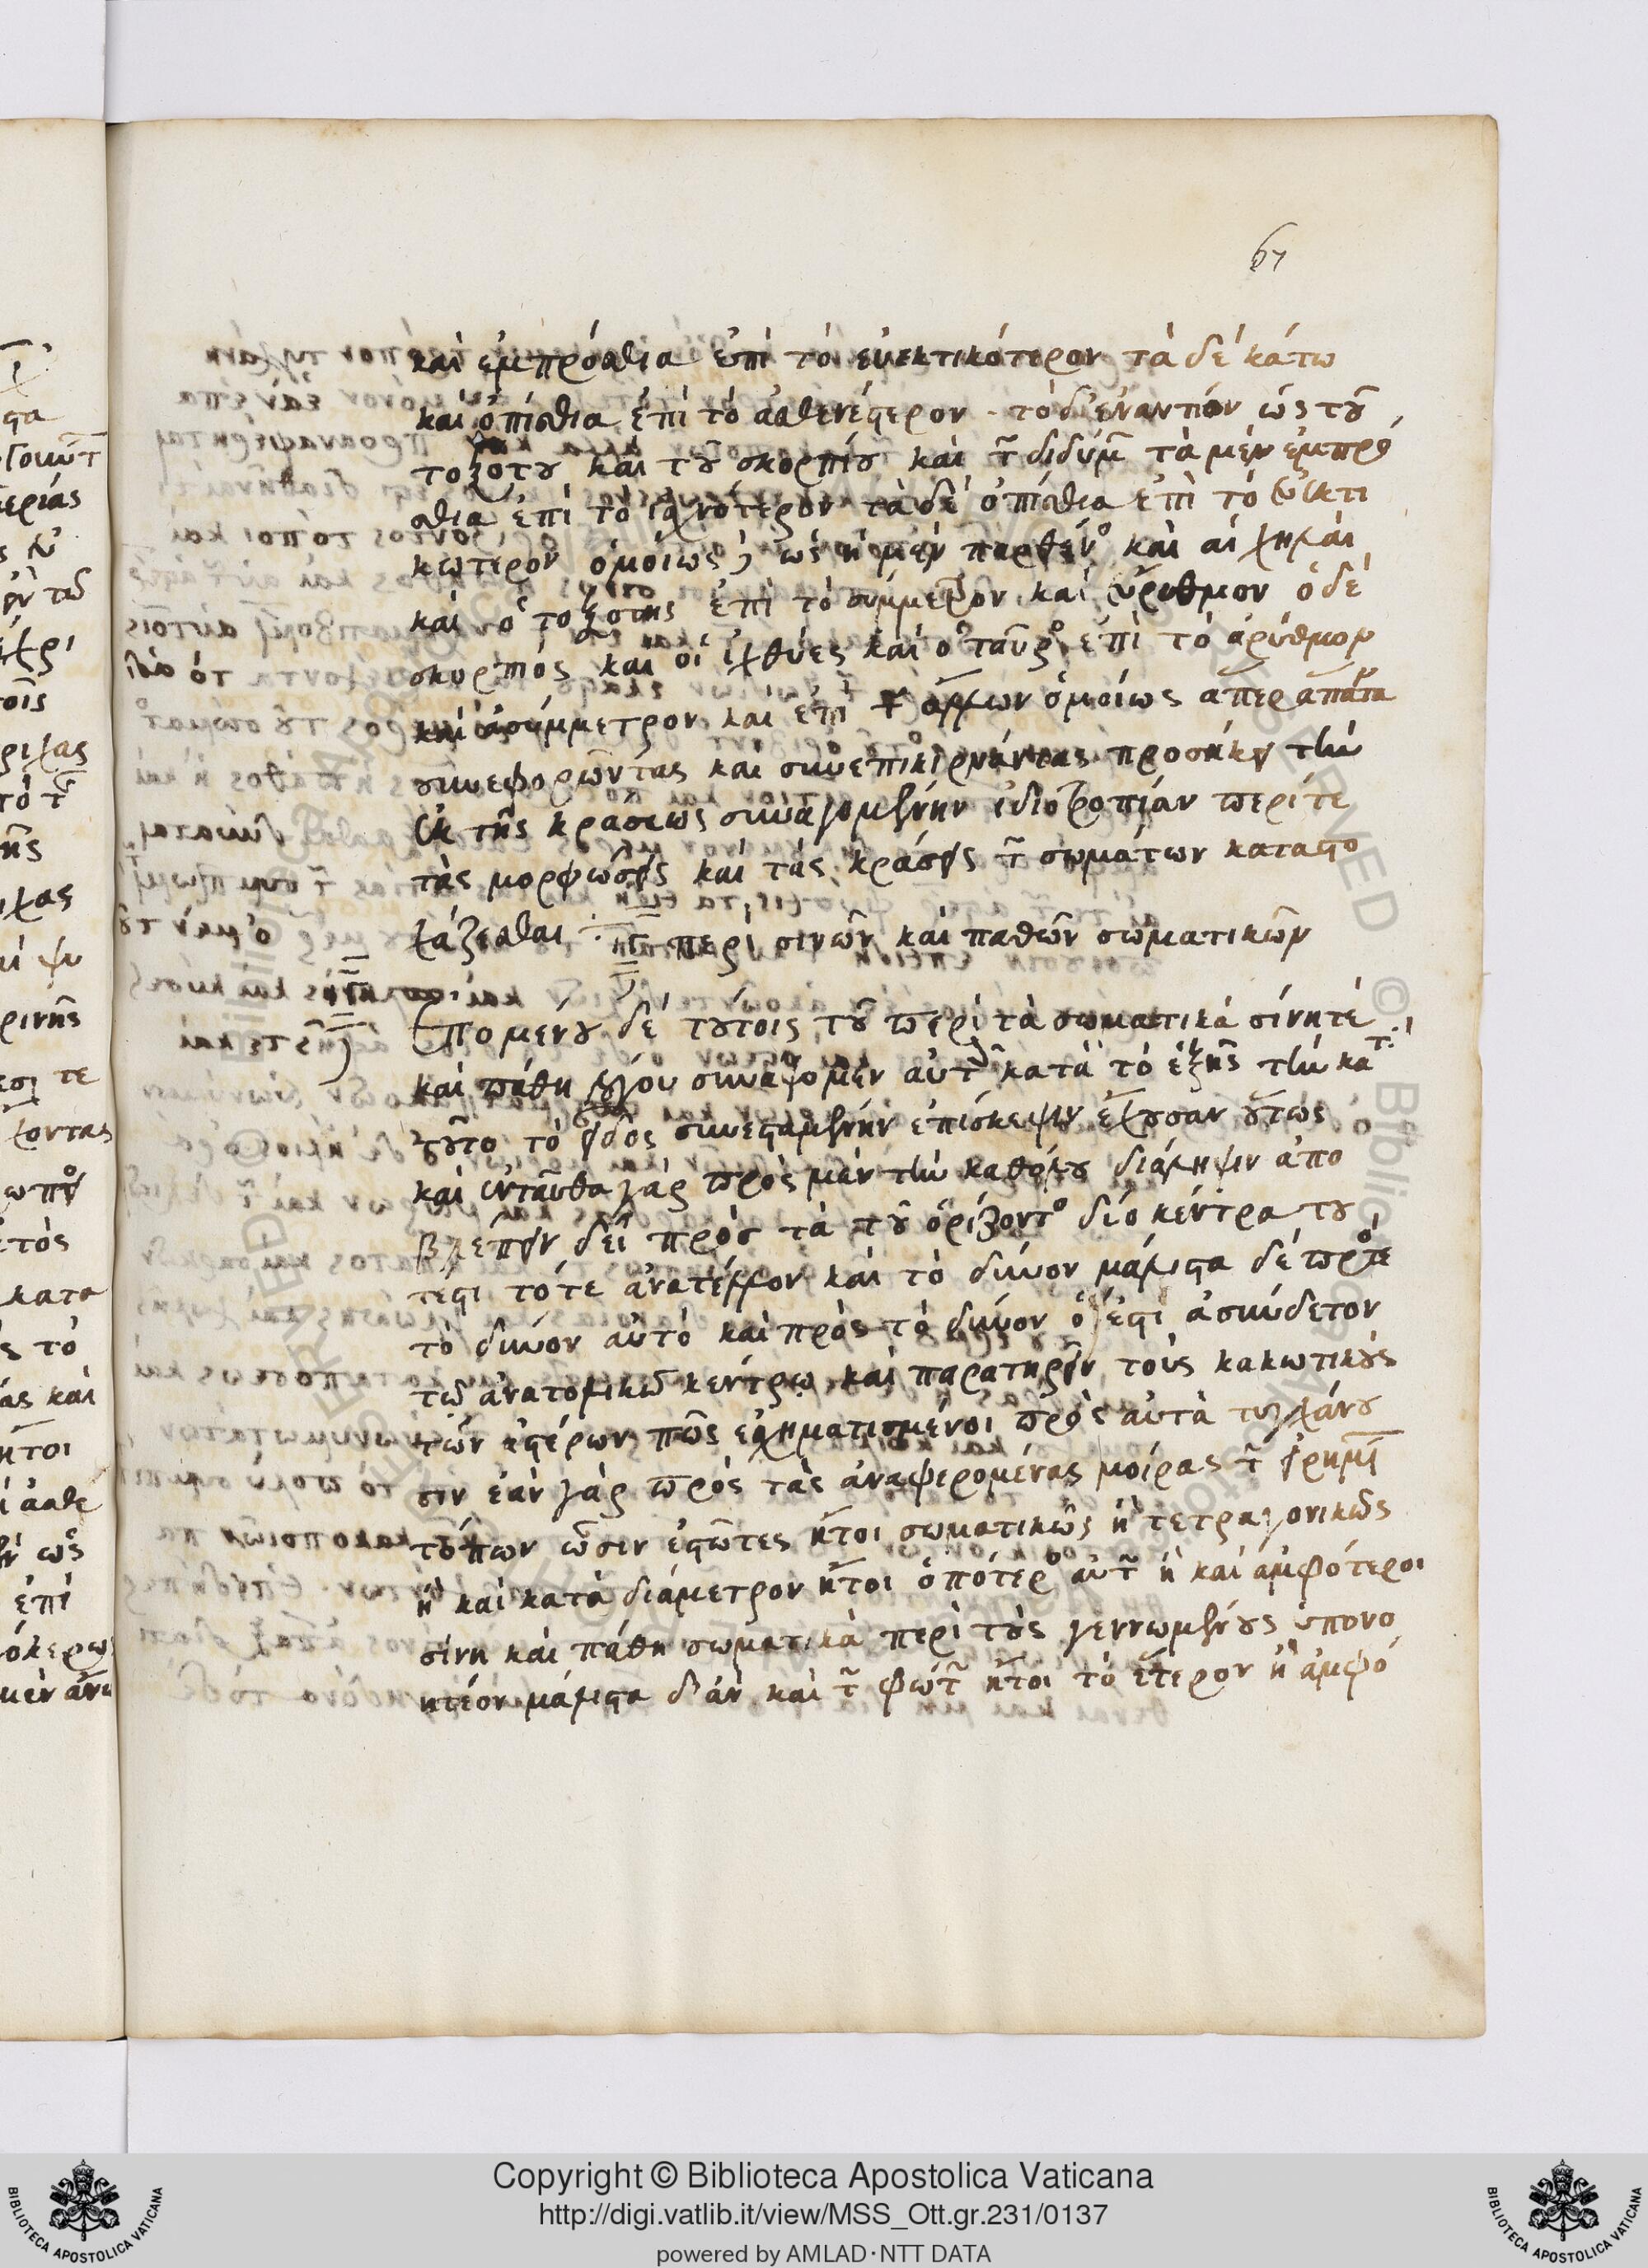 67
καὶ ἐμπρόσθια ἐπὶ τὸ εὐεκτικότερον τὰ δὲ κάτω
καὶ ὀπίσθια ἐπὶ τὸ ἀσθενέστερον. τὸ δ' ἐναντίον ὡς τοῦ
τοξότου καὶ τοῦ σκορπίου καὶ τ͂ διδύμ͂ τὰ μὲν ἐμπρό
σθια ἐπὶ τὸ ἰσχνότερον τὰ δὲ ὀπίσθια ἐπὶ τὸ εὐεκτι
κώτερον ὁμοίως, ὡς ἡ μὲν παρθένο καὶ αἱ χηλαὶ
καὶ ὁ τοξότης ἐπὶ τὸ σύμμετρον καὶ εὔρυθμον ὁ δὲ
σκορπιός καὶ οἱ ἰχθύες καὶ ὁ ταῦρο ἐπὶ τὸ ἄρυθμον
καὶ ἀσύμμετρον καὶ ἐπὶ τ͂ ἄλλων ὁμοίως ἅπερ ἅπαντα
συνεφορῶντας καὶ συνεπικιρνάντας προσήκει τὴν
ἐκ τῆς κράσεως συναγομένην ἰδιοτροπίαν περί τε
τὰς μορφώσεις καὶ τὰς κράσεις τ͂ σωμάτων καταστο
χάζεσθαι περὶ σινῶν καὶ παθῶν σωματικῶν
Ἑπομένου δὲ τούτοις τοῦ περὶ τὰ σωματικὰ σίνη τὲ
καὶ πάθη λόγου συνάψομεν αὐτ͂ κατὰ τὸ ἑξῆς τὴν κα
τοῦτο τὸ εἶδος συνεσταμένην ἐπίσκεψιν ἔχουσαν οὕτως
καὶ ἐνταῦθα γὰρ πρὸς μὲν τὴν καθόλου διάληψιν ἀπο
βλέπειν δεῖ πρὸς τὰ τοῦ ὁρίζοντο δύο κέντρα του
τέστι τό τε ἀνατέλλον καὶ τὸ δύνον μάλιστα δὲ πρός τε
τὸ δύνον αὐτὸ καὶ πρὸς τὸ δύνον ὅ ἐστι ἀσύνδετον
τῷ ἀνατολικῷ κέντρῳ καὶ παρατηρεῖν τοὺς κακωτικοὺς
τῶν ἀστέρων πῶς ἐσχηματισμένοι πρὸς αὐτὰ τυγχάνου
σιν ἐὰν γὰρ πρὸς τὰς ἀναφερομένας μοίρας τ͂ εἰρημ͂
τόπων ὦσιν ἑστῶτες ἤτοι σωματικῶς ἢ τετραγονικῶς
ἢ καὶ κατὰ διάμετρον ἤτοι ὁπότερο αὐτ͂ ἢ καὶ ἀμφότεροι
σίνη καὶ πάθη σωματικὰ περὶ τοὺς γεννωμένους ὑπονο
ητέον μάλιστα δ' ἂν καὶ τ͂ φώτ͂ ἤτοι τὸ ἕτερον ἢ ἀμφό
Copyright © Biblioteca Apostolica Vaticana
http://digi.vatlib.it/view/MSS_Ott.gr.231/0137
powered by AMLAD·NTT DATA
BIBLIOTECA APOSTOLICA VATICANA
BIBLIOTECA APOSTOLICA VATICANA